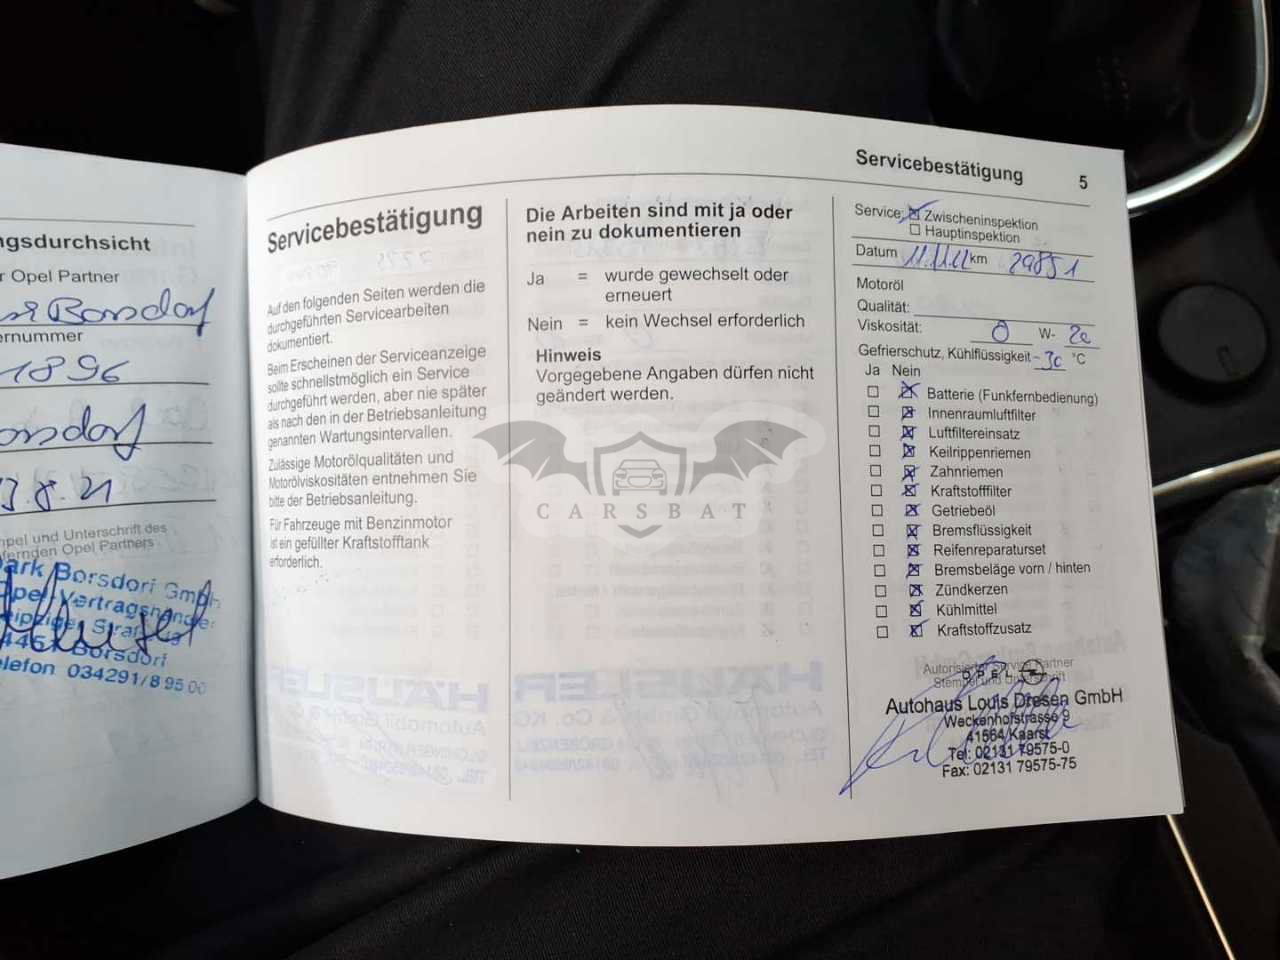 ngsdurchsicht
r Opel Partner
Borsdorf
ernummer
1896
orsdorf
3.8.21
mpel und Unterschrift des
efernden Opel Partners
park Borsdorf GmbH
Opel-Vertragshändler
Leipziger Straße
4451 Borsdorf
elefon 034291/8 95 00
Servicebestätigung 5
Servicebestätigung
Auf den folgenden Seiten werden die
durchgeführten Servicearbeiten
dokumentiert.
Beim Erscheinen der Serviceanzeige
sollte schnellstmöglich ein Service
durchgeführt werden, aber nie später
als nach den in der Betriebsanleitung
genannten Wartungsintervallen.
Zulässige Motorölqualitäten und
Motorölviskositäten entnehmen Sie
bitte der Betriebsanleitung.
Für Fahrzeuge mit Benzinmotor
ist ein gefüllter Kraftstofftank
erforderlich.
Die Arbeiten sind mit ja oder
nein zu dokumentieren
Ja = wurde gewechselt oder
erneuert
Nein = kein Wechsel erforderlich
Hinweis
Vorgegebene Angaben dürfen nicht
geändert werden.
CARSBAT
Service: Zwischeninspektion
Hauptinspektion
Datum 11.11.22 km 29851
Motoröl
Qualität:
Viskosität: 0 W- 20
Gefrierschutz, Kühlflüssigkeit -30 °C
Ja Nein
Batterie (Funkfernbedienung)
Innenraumluftfilter
Luftfiltereinsatz
Keilrippenriemen
Zahnriemen
Kraftstofffilter
Getriebeöl
Bremsflüssigkeit
Reifenreparaturset
Bremsbeläge vorn / hinten
Zündkerzen
Kühlmittel
Kraftstoffzusatz
Autorisierter Service Partner
Stempel und Unterschrift
OPEL
Autohaus Louis Dresen GmbH
Weckenhofstrasse 9
41564 Kaarst
Tel: 02131 79575-0
Fax: 02131 79575-75